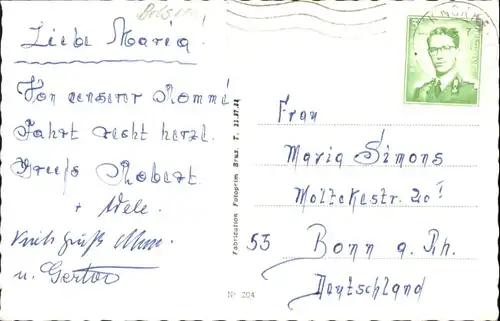 Liebe Maria.
Von unserer Romme
Fahrt recht herzl.
Grüße Robert.
+ Nele.
u. Gertud
Fabrication Fotoprim Brux. T. 21.27.24
Nr. 204
Frau
Maria Simons
Moltekestr. 20!
53 Bonn a. Rh.
Deutschland